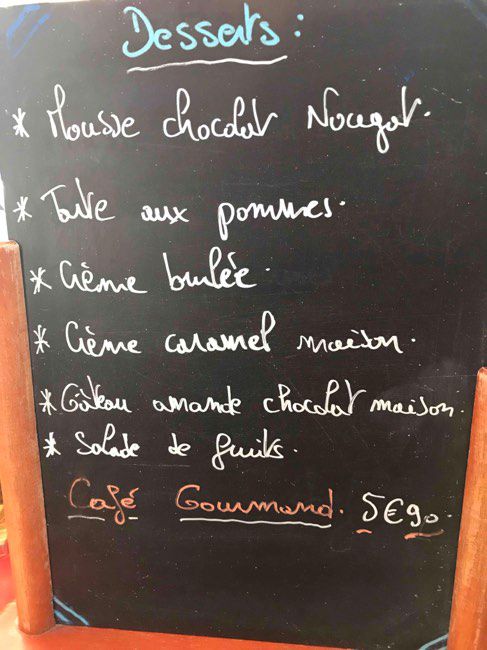 Desserts :
* Mousse chocolat Nougat.
* Tarte aux pommes.
* Crème brulée.
* Crème caramel maison.
* Gâteau amande chocolat maison.
* Salade de fruits.
Café Gourmand. 5€90.